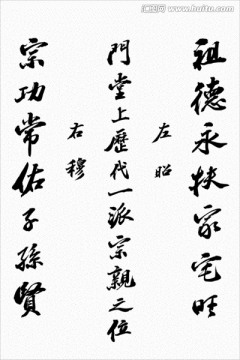 祖德永扶家宅旺
左昭
門堂上歷代一派宗親之位
右穆
宗功常佑子孫賢